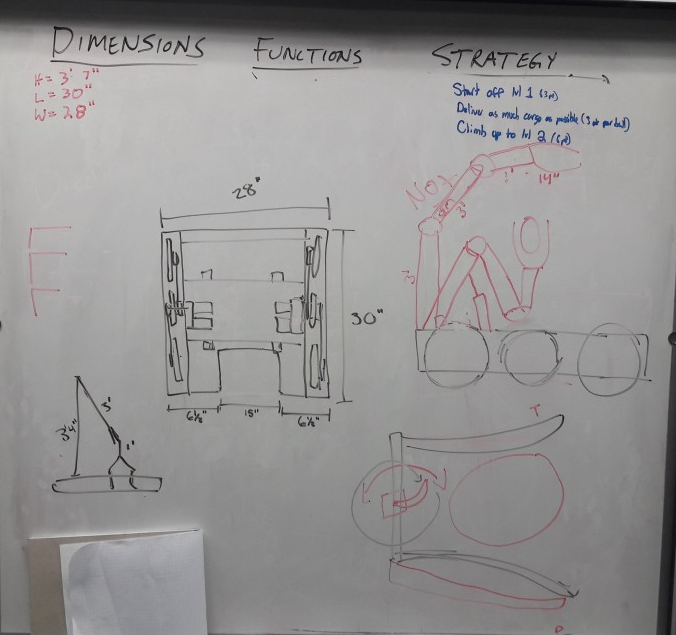 DIMENSIONS
FUNCTIONS
STRATEGY
H= 3' 7"
L= 30"
W= 28"
Start off lvl 1 (3pt)
Deliver as much cargo as possible (3 pt per ball)
Climb up to lvl 2 (6pt)
NO!
3'
14"
3'
28"
30"
6½" 15" 6½"
3'4"
3'
1'
T